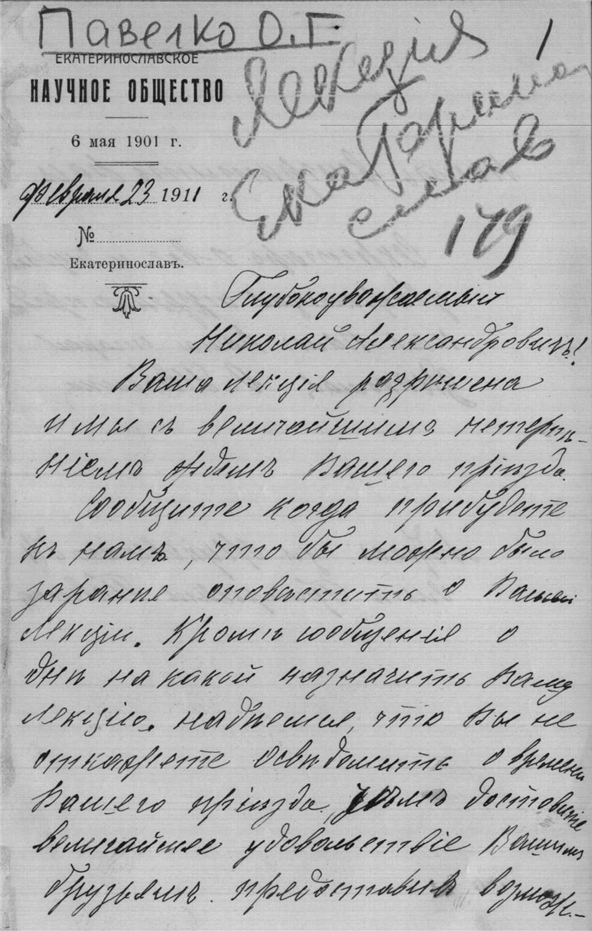 Павелко О.Г.
1
ЕКАТЕРИНОСЛАВСКОЕ
НАУЧНОЕ ОБЩЕСТВО
6 мая 1901 г.
Февраля 23 1911 г.
№
Екатеринославъ.
Лекция
Екатерино
слав
179
Глубокоуважаемый
Николай Александровичъ!
Ваша лекція разрѣшена
и мы съ величайшимъ нетерпѣ-
ніемъ ждемъ Вашего пріѣзда.
Сообщите когда прибудете
къ намъ, что бы можно было
заранѣе оповѣстить о Вашей
лекціи. Кромѣ сообщенія о
днѣ на какой назначить Вашу
лекцію, надѣемся, что Вы не
откажете освѣдомить о времени
Вашего пріѣзда, чѣмъ доставите
величайшее удовольствіе Вашимъ
друзьямъ, предоставивъ возмож-